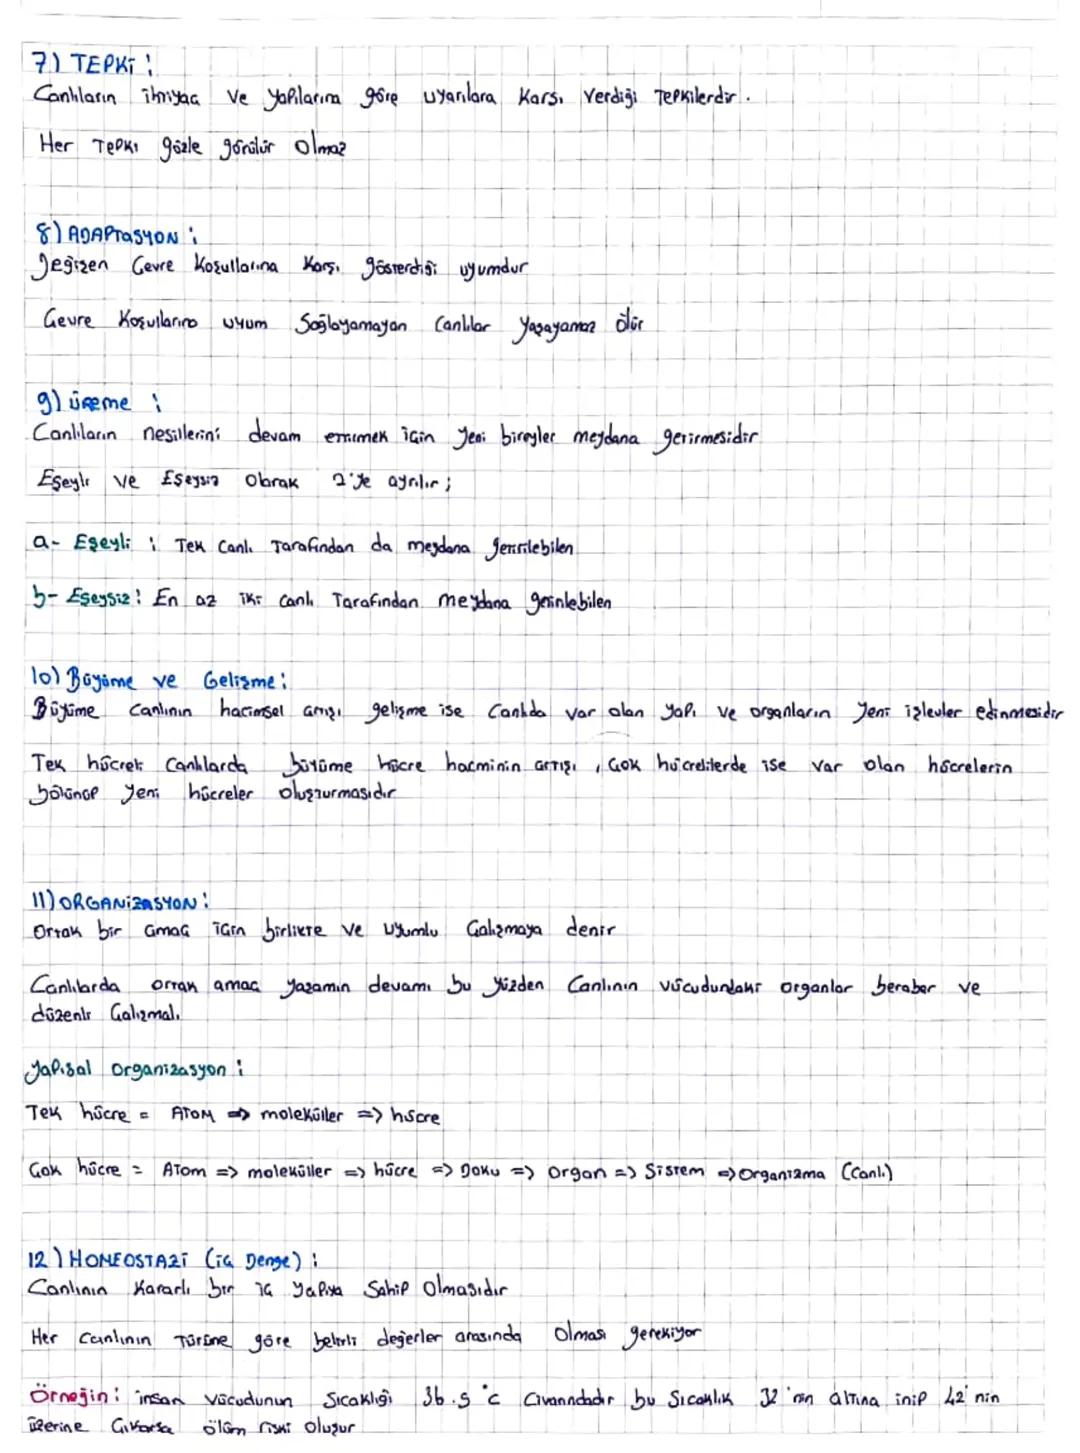 7) TEPKİ :
Canlıların ihtiyaç ve yapılarına göre uyarılara karşı verdiği tepkilerdir.
Her tepki gözle görülür olmaz
8) ADAPTASYON :
Değişen çevre koşullarına karşı gösterdiği uyumdur
Çevre koşullarına uyum sağlayamayan canlılar yaşayamaz ölür
9) üreme :
Canlıların nesillerini devam etmek için yeni bireyler meydana getirmesidir
Eşeyli ve Eşeysiz olarak 2'ye ayrılır ;
a- Eşeyli : Tek canlı tarafından da meydana getirilebilen
b- Eşeysiz : En az iki canlı tarafından meydana getirilebilen
10) Büyüme ve Gelişme :
Büyüme canlının hacimsel artışı gelişme ise canlıda var olan yapı ve organların yeni işlevler edinmesidir
Tek hücreli canlılarda büyüme hücre hacminin artışı , çok hücrelilerde ise var olan hücrelerin
bölünüp yeni hücreler oluşturmasıdır
11) ORGANİZASYON :
Ortak bir amaç için birlikte ve uyumlu çalışmaya denir
Canlılarda ortak amaç yaşamın devamı bu yüzden canlının vücudundaki organlar beraber ve
düzenli çalışmalı
Yapısal organizasyon :
Tek hücre = Atom => moleküller => hücre
Çok hücre = Atom => moleküller => hücre => Doku => organ => Sistem => organizma (Canlı)
12) HOMEOSTAZİ (iç Denge) :
Canlının kararlı bir iç yapıya sahip olmasıdır
Her canlının türüne göre belirli değerler arasında olması gerekiyor
Örneğin : insan vücudunun sıcaklığı 36.5 °c civarındadır bu sıcaklık 32'nin altına inip 42'nin
üzerine çıkarsa ölüm riski oluşur